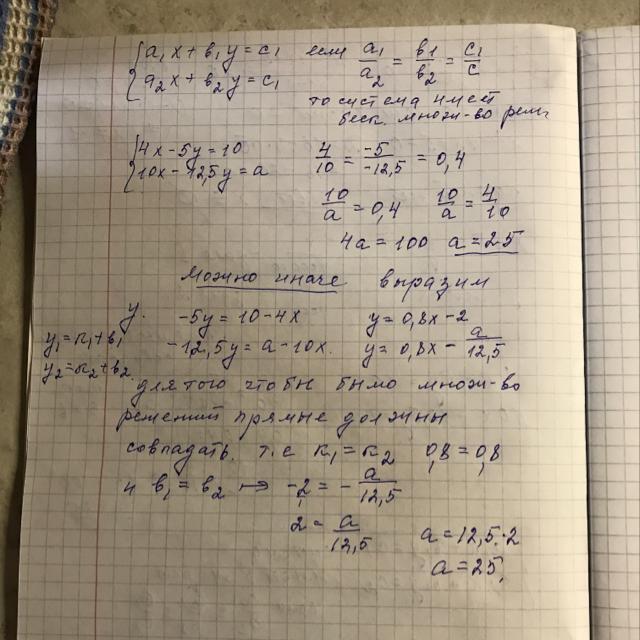 {a₁x + в₁y = c₁ если a₁/a₂ = в₁/в₂ = c₁/c
{a₂x + в₂y = c₁
то система имеет
беск. множ-во реш.
{4x - 5y = 10 4/10 = -5/-12,5 = 0,4
{10x - 12,5y = a
10/a = 0,4 10/a = 4/10
4a = 100 a = 25
можно иначе выразим
y. -5y = 10 - 4x y = 0,8x - 2
y₁ = к₁ + в₁ -12,5y = a - 10x. y = 0,8x - a/12,5
y₂ = к₂ + в₂
для того чтобы было множ-во
решений прямые должны
совпадать, т.е к₁ = к₂ 0,8 = 0,8
и в₁ = в₂ ↦ -2 = - a/12,5
2 = a/12,5 a = 12,5·2
a = 25,